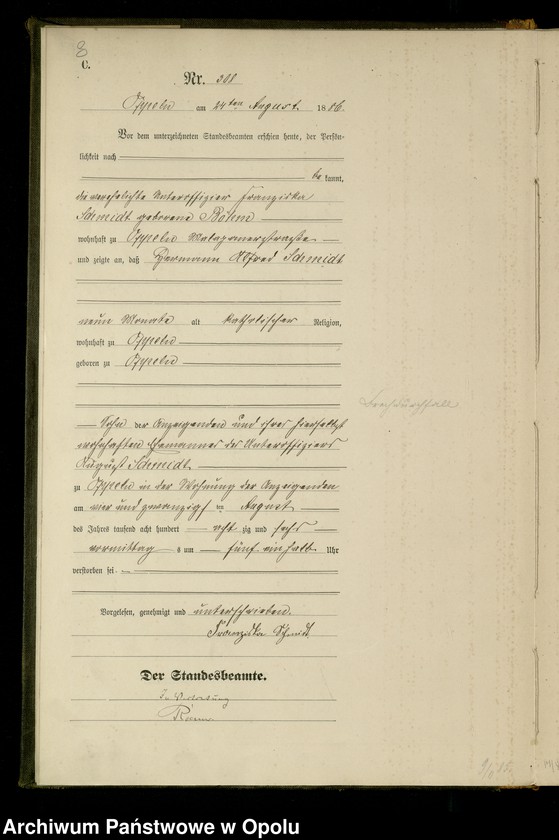 8
C.
Nr. 308
Oppeln am 24ten August 1886.
Vor dem unterzeichneten Standesbeamten erschien heute, der Persön-
lichkeit nach
be kannt,
die verehelichte Unteroffizier Franziska
Schmidt geborene Böhm
wohnhaft zu Oppeln Malapanerstraße
und zeigte an, daß Hermann Alfred Schmidt
neun Monate alt katholischer Religion,
wohnhaft zu Oppeln
geboren zu Oppeln
Sohn der Anzeigenden und ihres hierselbst
wohnhaften Ehemannes des Unteroffiziers
August Schmidt
zu Oppeln in der Wohnung der Anzeigenden
am vier und zwanzigsten August
des Jahres tausend acht hundert acht zig und sechs
vormittag s um fünf einhalb Uhr
verstorben sei.
Vorgelesen, genehmigt und unterschrieben.
Franziska Schmidt
Der Standesbeamte.
In Vertretung
Brechdurchfall
Archiwum Państwowe w Opolu